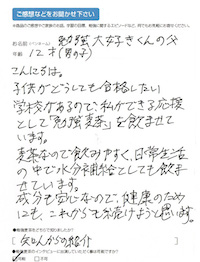 ご感想などをお聞かせ下さい
お名前(ペンネーム) 勉強大好きくんの父
年齢 12才(男の子)
こんにちは。
子供がどうしても合格したい
学校があるので、私ができる応援
として「勉強麦茶」を飲ませて
います。
麦茶なので飲みやすく、日常生活
の中で水分補給としても飲ま
せています。
成分も安心なので、健康のため
にも、これからも続けようと思います。
知人からの紹介